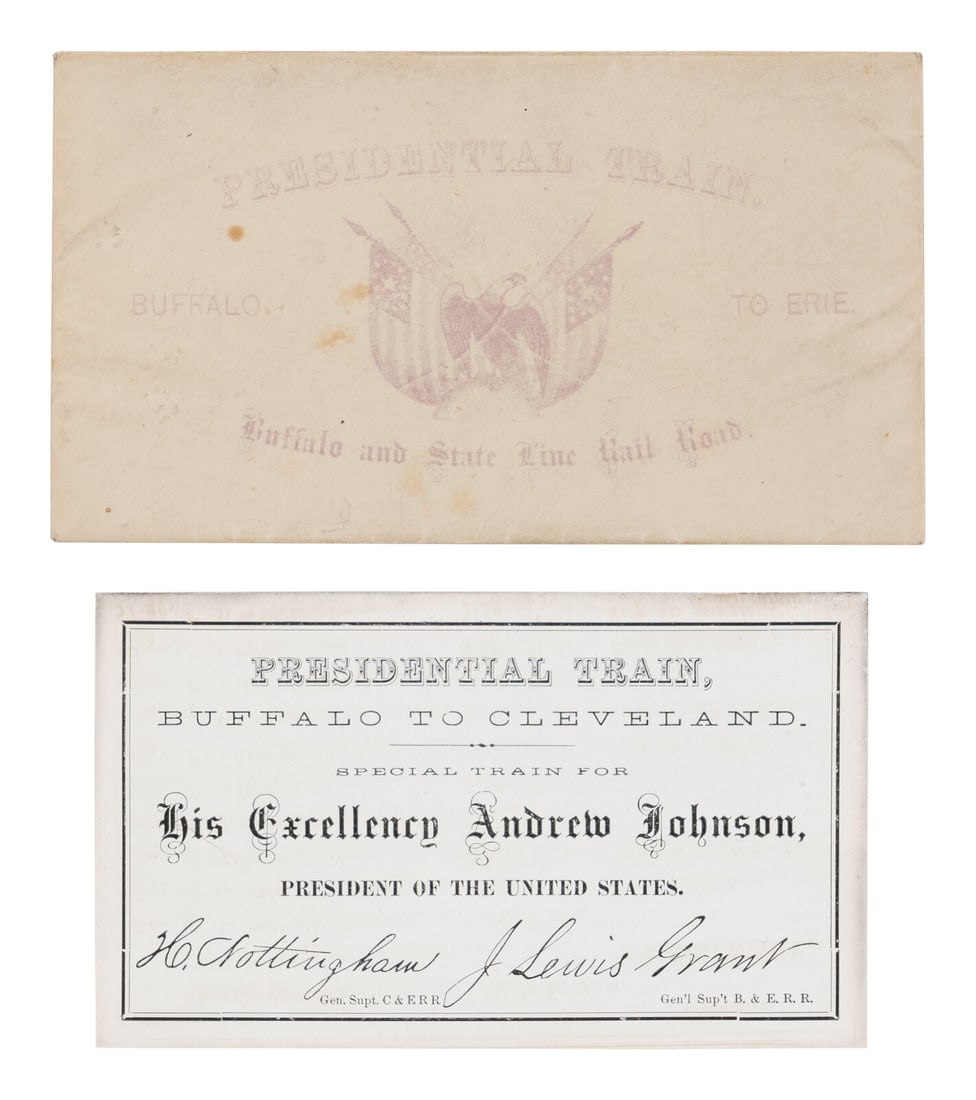 PRESIDENTIAL TRAIN.
BUFFALO. TO ERIE.
Buffalo and State Line Rail Road.
PRESIDENTIAL TRAIN,
BUFFALO TO CLEVELAND.
SPECIAL TRAIN FOR
His Excellency Andrew Johnson,
PRESIDENT OF THE UNITED STATES.
H. Nottingham J Lewis Grant
Gen. Supt. C & E R R Gen'l Sup't B. & E. R. R.